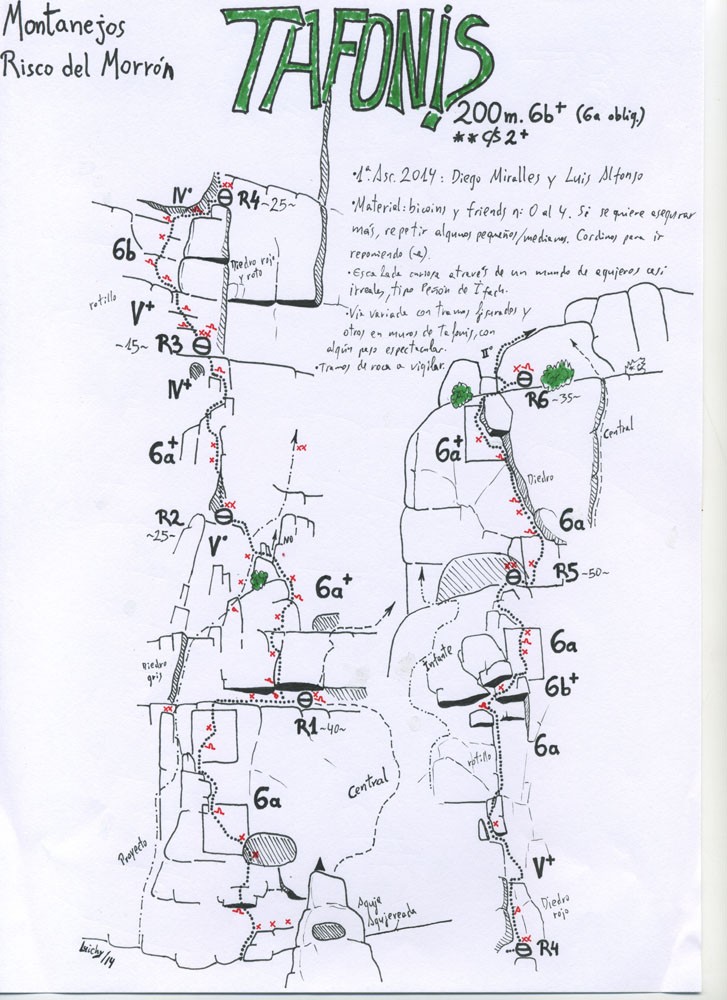 Montanejos
Risco del Morrón
TAFONIS
200m. 6b+ (6a oblig.)
2+
•1ª. Asc. 2014: Diego Miralles y Luis Alfonso
•Material: bicoins y friends nº 0 al 4. Si se quiere asegurar
más, repetir algunos pequeños/medianos. Cordinos para ir
reponiendo
•Escalada curiosa através de un mundo de agujeros casi
irreales, tipo Peñón de Ifach.
•Vía variada con tramos fisurados y
otros en muros de Tafonis, con
algún paso espectacular.
•Tramos de roca a vigilar.
IV°
R4 ~25~
6b
Diedro rojo
y roto
rotillo
V+
~15~ R3
IV+
6a+
R2
~25~
V°
NO
6a+
Diedro
gris
R1 ~40~
Central
6a
Proyecto
Aguja
Agujereada
luichy/14
II°
R6 ~35~
6a+
Central
Diedro
6a
R5 ~50~
Infante
6a
6b+
6a
rotillo
V+
Diedro
rojo
R4